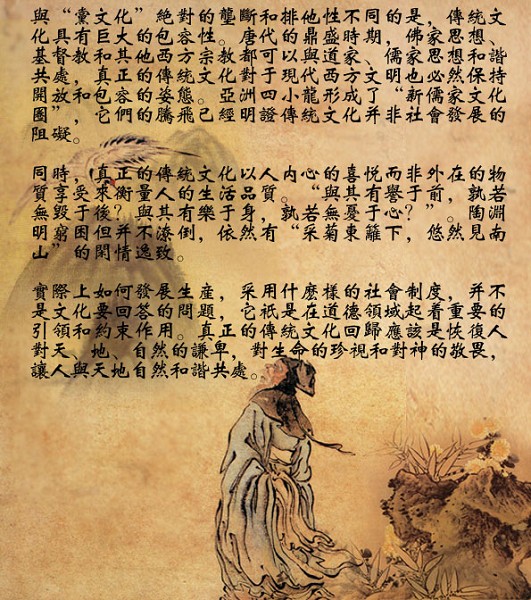 與“黨文化”絕對的壟斷和排他性不同的是，傳統文
化具有巨大的包容性。唐代的鼎盛時期，佛家思想、
基督教和其他西方宗教都可以與道家、儒家思想和諧
共處，真正的傳統文化對于現代西方文明也必然保持
開放和包容的姿態。亞洲四小龍形成了“新儒家文化
圈”，它們的騰飛已經明證傳統文化并非社會發展的
阻礙。
同時，真正的傳統文化以人内心的喜悦而非外在的物
質享受來衡量人的生活品質。“與其有譽于前，孰若
無毁于後？與其有樂于身，孰若無憂于心？”。陶淵
明窮困但并不潦倒，依然有“采菊東籬下，悠然見南
山”的閑情逸致。
實際上如何發展生産，采用什麽樣的社會制度，并不
是文化要回答的問題，它祇是在道德領域起着重要的
引領和約束作用。真正的傳統文化回歸應該是恢復人
對天、地、自然的謙卑，對生命的珍視和對神的敬畏，
讓人與天地自然和諧共處。